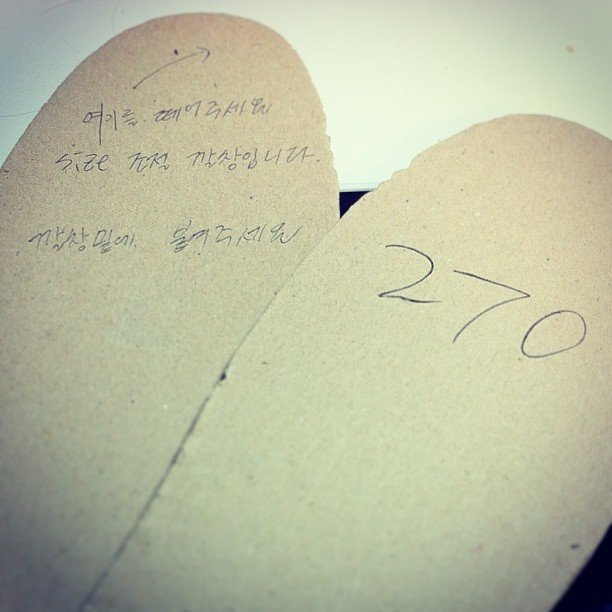 여기를 떼어주세요
size 조절 깔창입니다.
깔창밑에 붙여주세요
270